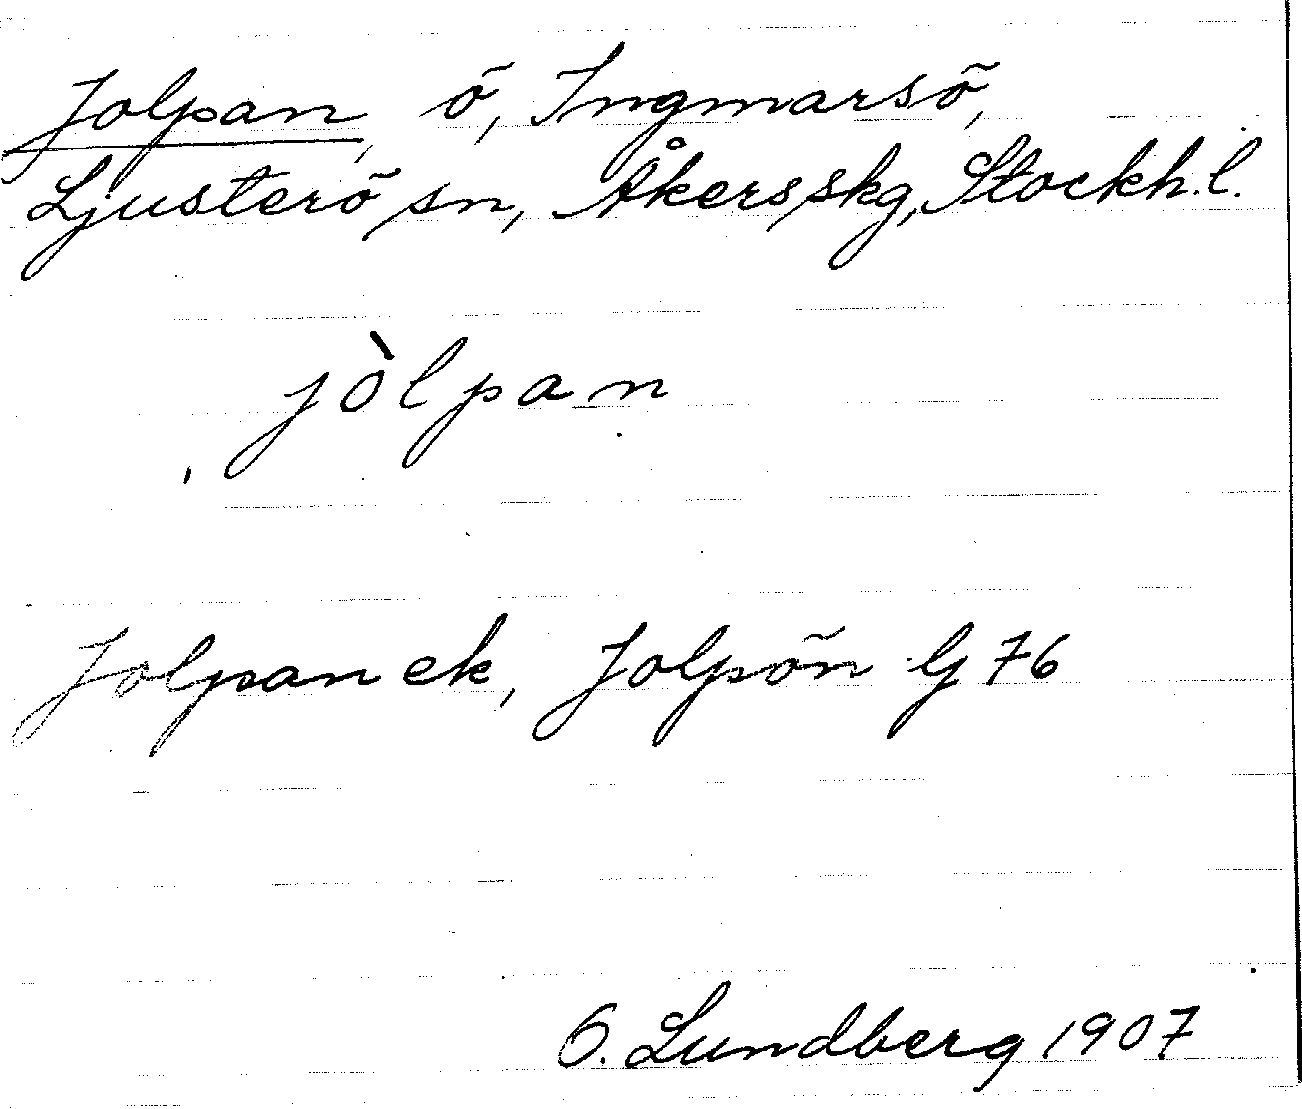 Jolpan, ö, Ingmarsö,
Ljusterö sn, Åkers skg, Stockh. l.
jòlpan
Jolpan ek, Jolpön Gf 76
O. Lundberg 1907